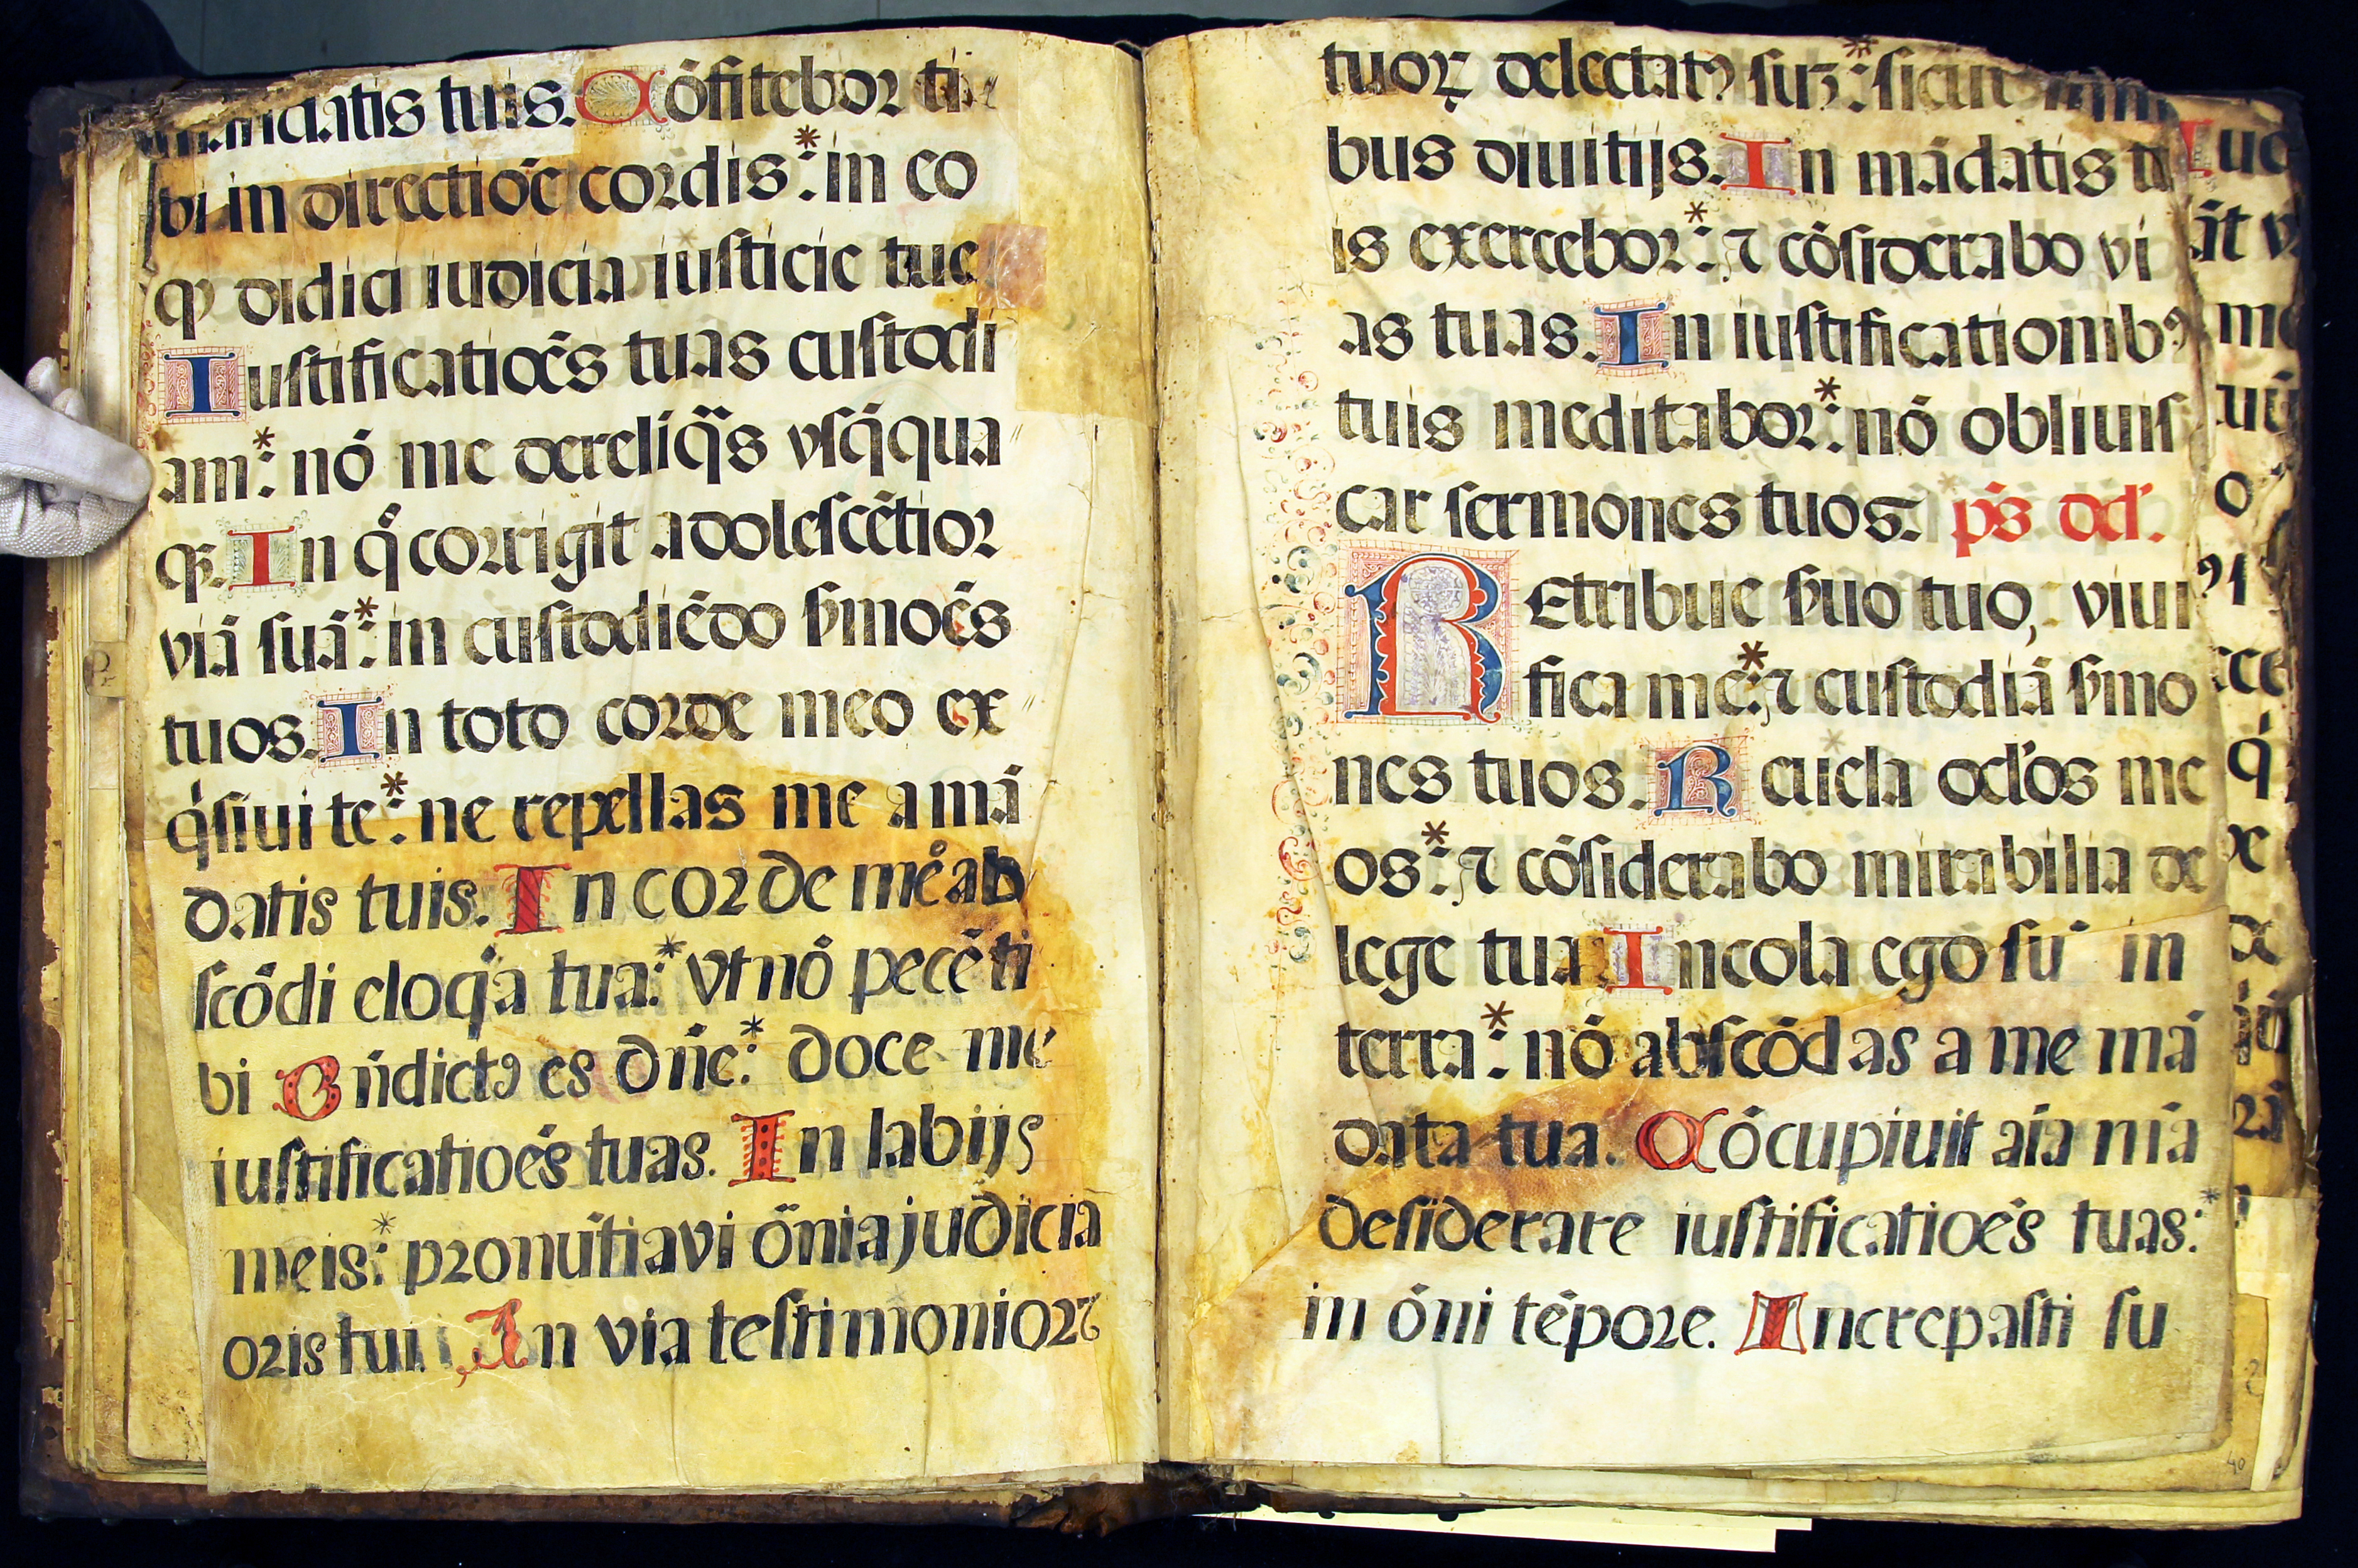 mandatis tuis. Cōfitebor ti
bi in directiōe cordis:* in eo
qɔ didici iudicia iusticie tue
Iustificatiōēs tuas custodi
am:* nō me derelīq̄s vsq̄qua
qȝ. In q̊ corrigit adolescētior
viā suā:* in custodiēdo ẜmoēs
tuos. In toto corde meo ex
q̇siui te:* ne repellas me a mā
datis tuis. In corde meo ab
scōdi eloq̇a tua:* vt nō pecē ti
bi Bn̄dictꝰ es dn̄e:* doce me
iustificatioēs tuas. In labijs
meis:* pronūtiavi ōnia judicia
oris tui. In via testimonioꝝ
tuoꝝ delectatꝰ suȝ:* sicut in om̄i
bus diuitijs. In mādatis tu
is exercebor:* ⁊ cōsiderabo vi
as tuas. In iustificationibꝰ
tuis meditabor:* nō obliuis
car sermones tuos. p̄s dd'.
REtribue ẜuo tuo, viui
fica me:* ⁊ custodiā ẜmo
nes tuos. Reuela ocl'os me
os:* ⁊ cōsiderabo mirabilia de
lege tua Incola ego sū in
terra:* nō abscōdas a me mā
data tua. Cōcupiuit aīa mā
desiderare iustificatioēs tuas:*
in ōni tēpore. Increpasti su
40